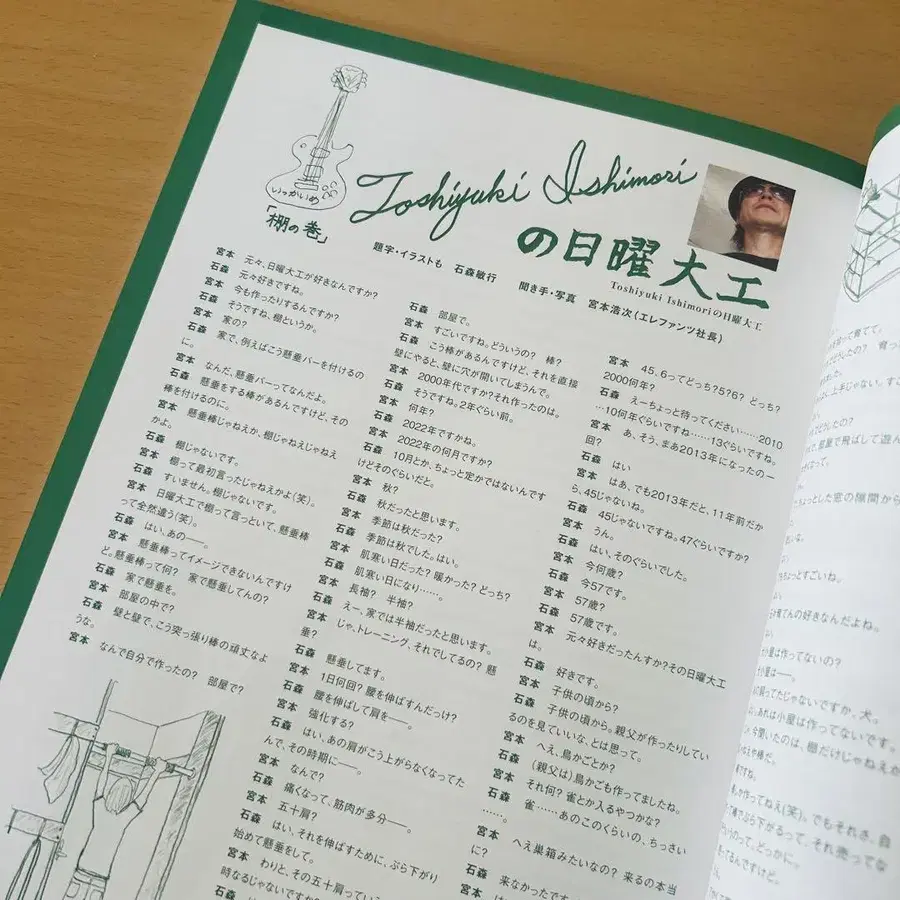 いっかいめ
「棚の巻」
Toshiyuki Ishimori
の日曜大工
Toshiyuki Ishimoriの日曜大工
題字・イラストも 石森敏行 聞き手・写真 宮本浩次(エレファンツ社長)
宮本 元々、日曜大工が好きなんですか?
石森 元々好きですね。
宮本 今も作ったりするんですか?
石森 そうですね、棚というか。
宮本 家の?
石森 家で、例えばこう懸垂バーを付けるの
に。
宮本 なんだ、懸垂バーってなんだよ。
石森 懸垂をする棒があるんですけど、その
棒を付けるのに。
宮本 懸垂棒じゃねえか、棚じゃねえじゃねえ
かよ。
石森 棚じゃないです。
宮本 棚って最初言ったじゃねえかよ(笑)。
石森 すいません。棚じゃないです。
宮本 日曜大工で棚って言っといて、懸垂棒
って全然違う(笑)。
石森 はい、あの──。
宮本 懸垂棒ってイメージできないんですけ
ど。懸垂棒って何? 家で懸垂してんの?
石森 家で懸垂を。
宮本 部屋の中で?
石森 壁と壁で、こう突っ張り棒の頑丈なよ
うな。
宮本 なんで自分で作ったの? 部屋で?
石森 部屋で。
宮本 すごいですね。どういうの? 棒?
石森 こう棒があるんですけど、それを直接
壁にやると、壁に穴が開いてしまうんで。
宮本 2000年代ですか?それ作ったのは。
石森 そうですね。2年ぐらい前。
宮本 何年?
石森 2022年ですかね。
宮本 2022年の何月ですか?
石森 10月とか、ちょっと定かではないんです
けどそのぐらいだと。
宮本 秋?
石森 秋だったと思います。
宮本 季節は秋だった?
石森 季節は秋でした。はい。
宮本 肌寒い日だった? 暖かった? どっち?
石森 肌寒い日になり……。
宮本 長袖? 半袖?
石森 えー、家では半袖だったと思います。
宮本 じゃ、トレーニング、それでしてるの? 懸
垂?
石森 懸垂してます。
宮本 1日何回? 腰を伸ばすんだっけ?
石森 腰を伸ばして肩を──。
宮本 強化する?
石森 はい、あの肩がこう上がらなくなってた
んで、その時期に──。
宮本 なんで?
石森 痛くなって、筋肉が多分──。
宮本 五十肩?
石森 はい、それを伸ばすために、ぶら下がり
始めて懸垂をして。
宮本 わりと、その五十肩ってい
時なるじゃないですか
石森
宮本 45、6ってどっち?5?6? どっち?
2000何年?
石森 えーちょっと待ってください……2010
…10何年ぐらいですね……13ぐらいですね。
宮本 あ、そう、まあ2013年になったの一
回?
石森 はい
宮本 はあ、でも2013年だと、11年前だか
ら、45じゃないね。
石森 45じゃないですね。47ぐらいですか?
宮本 うん。
石森 はい、そのぐらいでした。
宮本 今何歳?
石森 今57です。
宮本 57歳?
石森 57歳です。
宮本 元々好きだったんすか?その日曜大工
は。
石森 好きです。
宮本 子供の頃から?
石森 子供の頃から。親父が作ったりしてい
るのを見ていいな、とは思って。
宮本 へえ、鳥かごとか?
石森 (親父は)鳥かごも作ってましたね。
宮本 それ何? 雀とか入るやつかな?
石森 雀……あのこのくらいの、ちっさい
……。
宮本 へえ巣箱みたいなの? 来るの本当
に?
石森 来なかったです
宮本